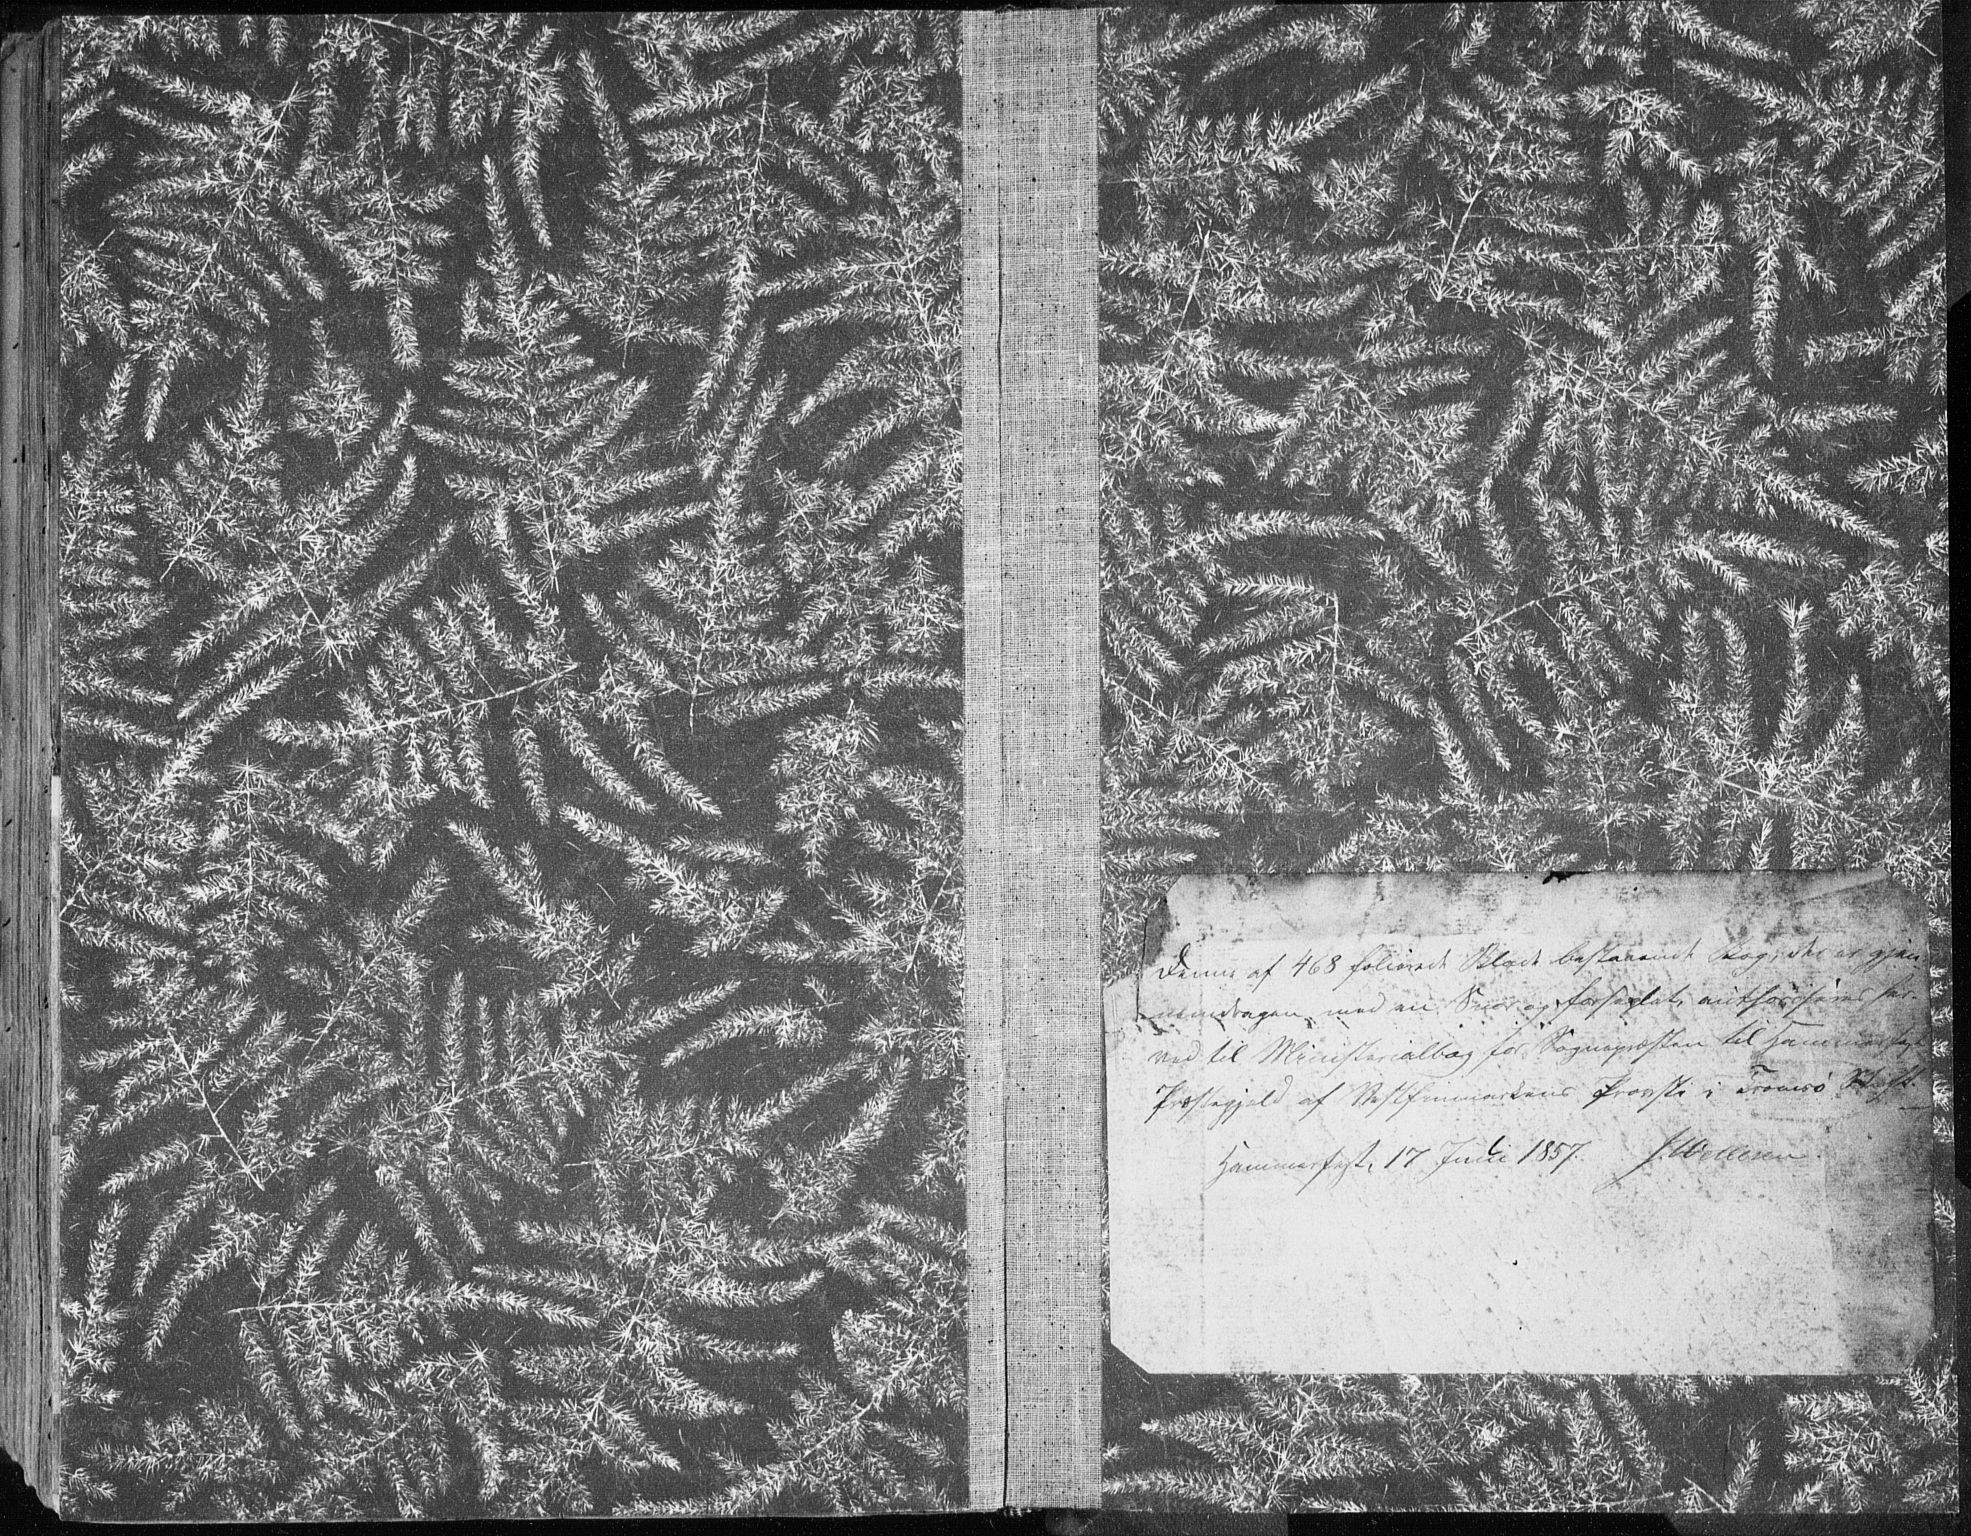 Denne af 468 folierede Blade bestaaende Bog, der er gjen-
nemdragen med en Snor og forseglet, authoriseres her-
ved til Ministerialbog for Sognepræsten til Hammerfest
Præstegjeld af Vestfinmarkens Provsti i Tromsø Stift.
Hammerfest, 17 Juli 1857.